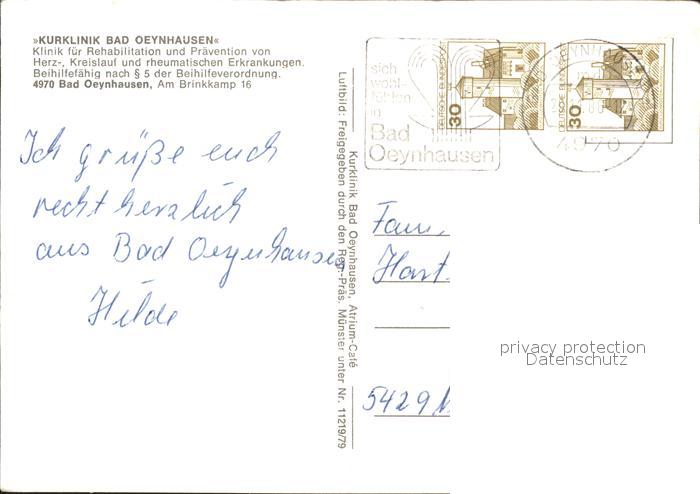 »KURKLINIK BAD OEYNHAUSEN«
Klinik für Rehabilitation und Prävention von
Herz-, Kreislauf und rheumatischen Erkrankungen.
Beihilfefähig nach § 5 der Beihilfeverordnung.
4970 Bad Oeynhausen, Am Brinkkamp 16
Ich grüße euch
recht herzlich
aus Bad Oeynhausen
Hilde
Kurklinik Bad Oeynhausen, Atrium-Café
Luftbild: Freigegeben durch den Reg.-Präs. Münster unter Nr. 11219/79
sich
wohl-
fühlen
in
Bad
Oeynhausen
30
DEUTSCHE BUNDESPOST
30
DEUTSCHE BUNDESPOST
4970
Fam.
Hart
5429
privacy protection
Datenschutz